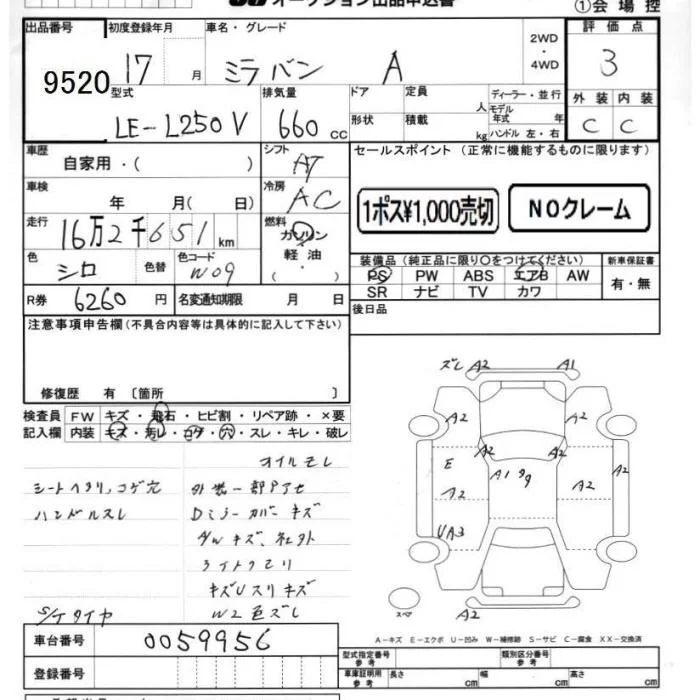 オークション出品申込書
①会場控
出品番号 初度登録年月 車名・グレード 2WD・4WD 評価点
9520 17 月 ミラバン A 3
型式 排気量 ドア 定員 人 ディーラー・並行 外装 内装
LE-L250V 660 cc 形状 積載 kg モデル年式 年 ハンドル 左・右 C C
車歴 自家用・( ) シフト AT セールスポイント (正常に機能するものに限ります)
車検 年 月( 日) 冷房 AC 1ポス¥1,000売切 NOクレーム
走行 16万2千651 km 燃料 ガソリン 軽油・( )
色 シロ 色替 色コード W09 装備品 (純正品に限り〇をつけてください) 新車保証書
PS PW ABS エアB AW 有・無
SR ナビ TV カワ
R券 6260 円 名変通知期限 月 日 後日品
注意事項申告欄 (不具合内容等は具体的に記入して下さい)
修復歴 有 〔箇所 〕
検査員 FW キズ・飛石・ヒビ割・リペア跡・×要
記入欄 内装 キズ・汚レ・コゲ・穴・スレ・キレ・破レ
オイルモレ
シートヘタリ、コゲ穴 外装一部アセ
ハンドルスレ Dミラーカバーキズ
キズUスリキズ
S/Tタイヤ W2色ズレ
ズレ A2 A1
A2 A2
A2 A2
E A1 A2
A2 A2
UA3
A2
スペア
A-キズ E-エクボ U-凹み W-補修跡 S-サビ C-腐食 XX-交換済
車台番号 0059956
型式指定番号 参考 類別区分番号 参考
登録番号 車庫証明用 参考 長さ cm 幅 cm 高さ cm